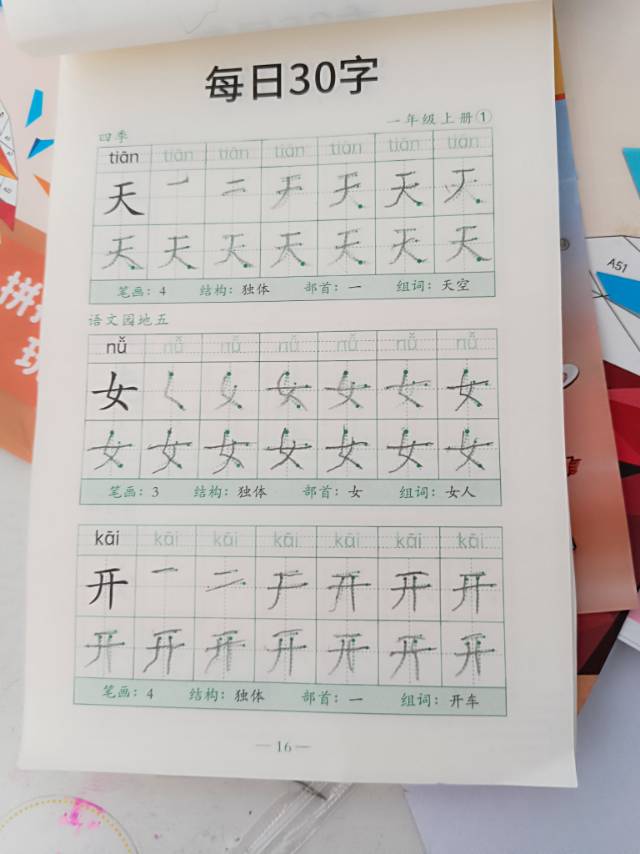 每日30字
一年级上册①
四季
tiān tiān tiān tiān tiān tiān tiān
天 一 二 天 天 天 天
天 天 天 天 天 天 天
笔画：4 结构：独体 部首：一 组词：天空
语文园地五
nǚ nǚ nǚ nǚ nǚ nǚ nǚ
女 く 女 女 女 女 女
女 女 女 女 女 女 女
笔画：3 结构：独体 部首：女 组词：女人
kāi kāi kāi kāi kāi kāi kāi
开 一 二 开 开 开 开
开 开 开 开 开 开 开
笔画：4 结构：独体 部首：一 组词：开车
—16—
A51
拼
玩